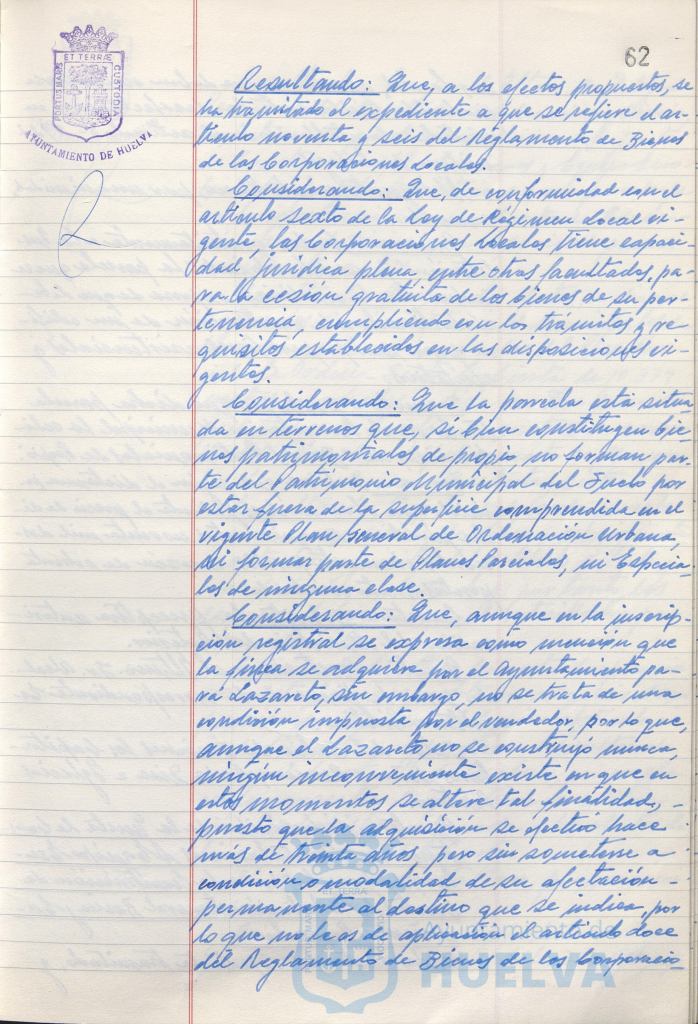 62
ET TERRÆ
PORTUS MARIS
CUSTODIA
AYUNTAMIENTO DE HUELVA
Resultando: Que, a los efectos propuestos, se
ha tramitado el expediente a que se refiere el ar-
tículo noventa y seis del Reglamento de Bienes
de las Corporaciones Locales.
Considerando: Que, de conformidad con el
artículo sexto de la Ley de Régimen Local vi-
gente, las Corporaciones Locales tiene capaci-
dad jurídica plena, entre otras facultades, pa-
ra la cesión gratuita de los bienes de su per-
tenencia, cumpliendo con los trámites y re-
quisitos establecidos en las disposiciones vi-
gentes.
Considerando: Que la parcela está situa-
da en terrenos que, si bien constituyen bie-
nes patrimoniales de propio, no forman par-
te del Patrimonio Municipal del Suelo por
estar fuera de la superficie comprendida en el
vigente Plan General de Ordenación Urbana,
ni formar parte de Planes Parciales, ni Especia-
les de ninguna clase.
Considerando: Que, aunque en la inscrip-
ción registral se expresa como mención que
la finca se adquiere por el Ayuntamiento pa-
ra Lazareto, sin embargo, no se trata de una
condición impuesta por el vendedor, por lo que,
aunque el Lazareto no se construyó nunca,
ningún inconveniente existe en que en
estos momentos se altere tal finalidad, -
puesto que la adquisición se efectuó hace
más de treinta años, pero sin someterse a
condición o modalidad de su afectación -
permanente al destino que se indica, por
lo que no le es de aplicación el artículo doce
del Reglamento de Bienes de las Corporacio-
Ayuntamiento de
HUELVA